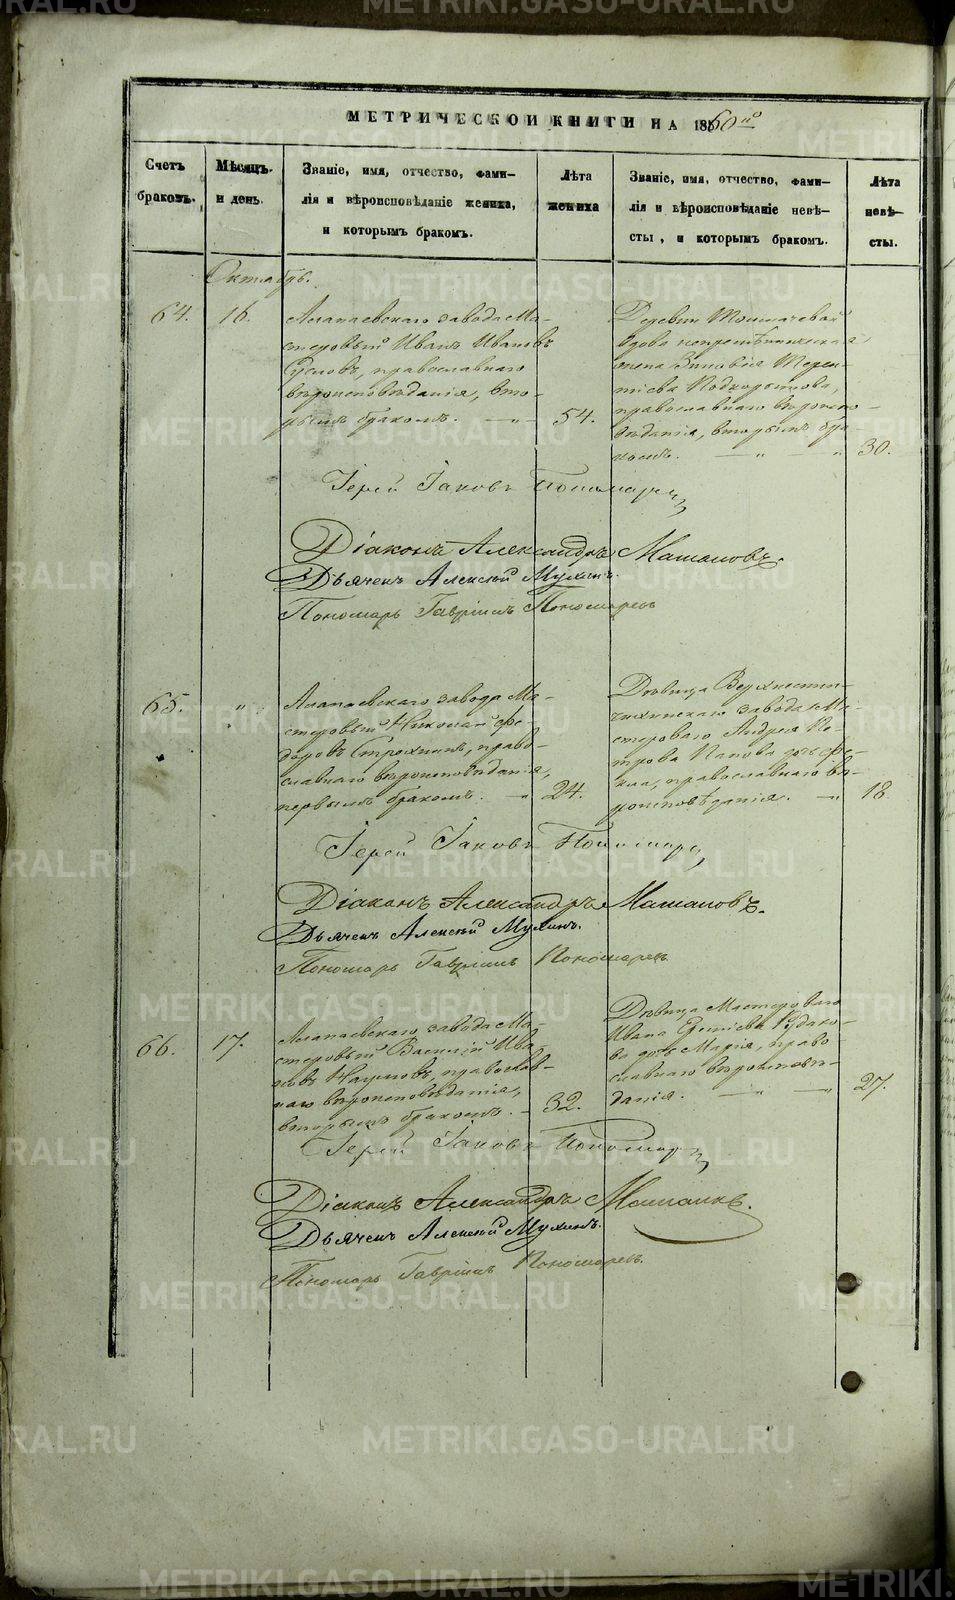 МЕТРИЧЕСКОЙ КНИГИ НА 1860го
Счетъ
браковъ.
Мѣсяцъ.
и день.
Званіе, имя, отчество, фами-
лія и вѣроисповѣданіе жениха,
и которымъ бракомъ.
Лѣта
жениха
Званіе, имя, отчество, фами-
лія и вѣроисповѣданіе невѣ-
сты, и которымъ бракомъ.
Лѣта
невѣ-
сты.
Октябрь.
64.
16.
Алапаевскаго завода Ма-
стеровый Иванъ Ивановъ
Сусловъ, православнаго
вѣроисповѣданія, вто-
рымъ бракомъ.
54.
Деревни Толмачевой
вдова непремѣнническая
жена Зиновія Терен-
тіева Подкорытова,
православнаго вѣроиспо-
вѣданія, вторымъ бра-
комъ.
30.
Іерей Іаковъ Пономарев
Діаконъ Александръ Машановъ.
Дьячекъ Алексѣй Мухинъ.
Пономарь Гавріилъ Пономаревъ
65.
"
Алапаевскаго завода Ма-
стеровый Николай Фе-
доровъ Строжинъ, право-
славнаго вѣроисповѣданія,
первымъ бракомъ.
24.
Дѣвица
завода Ма-
стероваго Андрея Пе-
трова Попова дочь Фе-
кла, православнаго вѣ-
роисповѣданія.
18.
Іерей Іаковъ Пономарев
Діаконъ Александръ Машановъ.
Дьячекъ Алексѣй Мухинъ.
Пономарь Гавріилъ Пономаревъ
66.
17.
Алапаевскаго завода Ма-
стеровый Василій Ива-
новъ Наумовъ, православ-
наго вѣроисповѣданія,
вторымъ бракомъ.
32.
Дѣвица Мастероваго
Ивана Рудако-
ва дочь Марія, право-
славнаго вѣроисповѣ-
данія.
27.
Іерей Іаковъ Пономарев
Діаконъ Александръ Машановъ.
Дьячекъ Алексѣй Мухинъ.
Пономарь Гавріилъ Пономаревъ.
METRIKI.GASO-URAL.RU